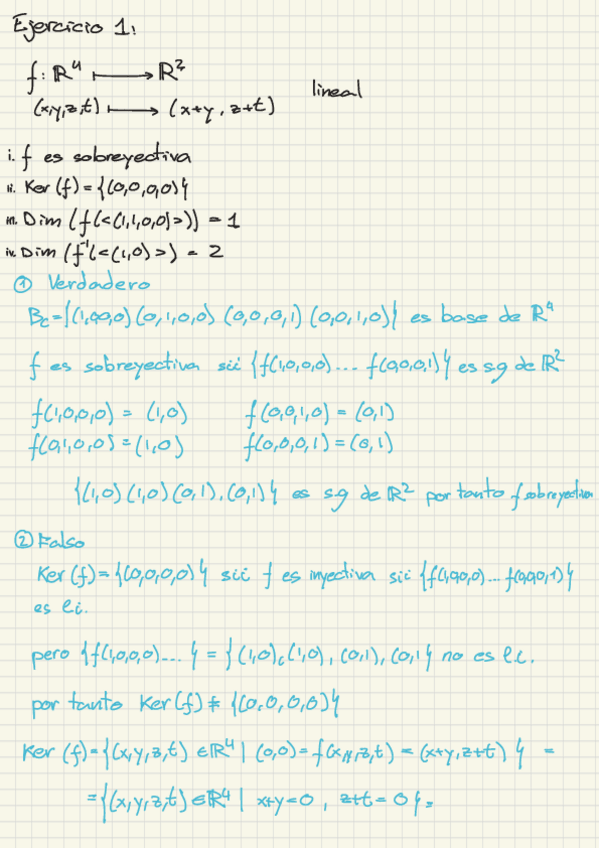 Ejercicio 1:
f: ℝ⁴ ⟼ ℝ²
(x,y,z,t) ⟼ (x+y, z+t)
lineal
i. f es sobreyectiva
ii. Ker (f) = {(0,0,0,0)}
iii. Dim (f(<(1,1,0,0)>)) = 1
iv. Dim (f⁻¹(<(1,0)>) = 2
① Verdadero
Bc = {(1,0,0,0) (0,1,0,0) (0,0,0,1) (0,0,1,0)} es base de ℝ⁴
f es sobreyectiva sii {f(1,0,0,0)... f(0,0,0,1)} es sg de ℝ²
f(1,0,0,0) = (1,0) f(0,0,1,0) = (0,1)
f(0,1,0,0) = (1,0) f(0,0,0,1) = (0,1)
{(1,0) (1,0) (0,1), (0,1)} es s.g de ℝ² por tanto f sobreyectiva
② Falso
Ker (f) = {(0,0,0,0)} sii f es inyectiva sii {f(1,0,0,0)... f(0,0,0,1)}
es l.i.
pero {f(1,0,0,0)... } = {(1,0), (1,0), (0,1), (0,1} no es l.i.
por tanto Ker (f) ≠ {(0,0,0,0)}
Ker (f) = {(x,y,z,t) ∈ ℝ⁴ | (0,0) = f(x,y,z,t) = (x+y, z+t) } =
= {(x,y,z,t) ∈ ℝ⁴ | x+y=0 , z+t = 0} =